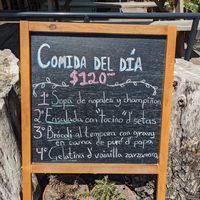 COMIDA DEL DÍA
$120.-
1° Sopa de nopales y champiñon
2° Ensalada con "tocino" d setas
3° Brócoli al tempura con gravy
en cama de puré d' papa
4° Gelatina d' vainilla zarzamora